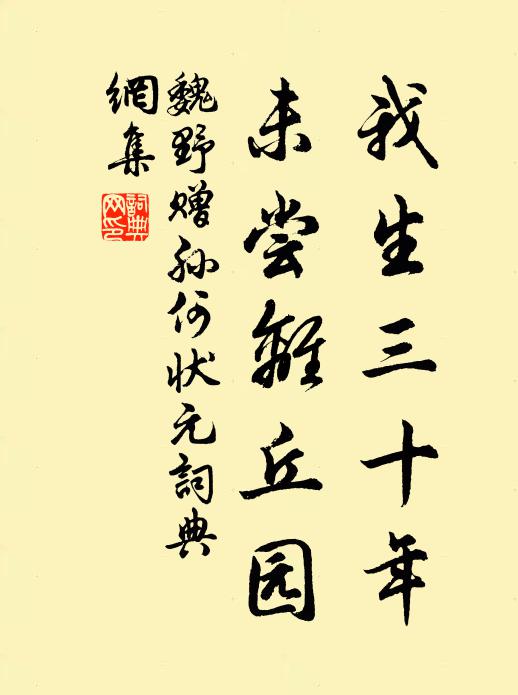 我生三十年
未尝離丘园
魏野赠孙何状元詞典
網集
詞典网印